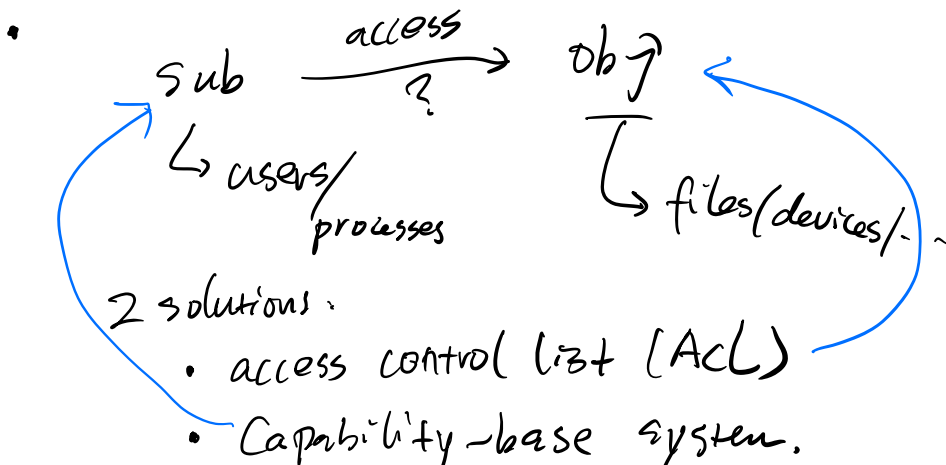 access
sub ? obj
users/
processes
files/devices/--
2 solutions.
• access control list (ACL)
• Capability-base system.